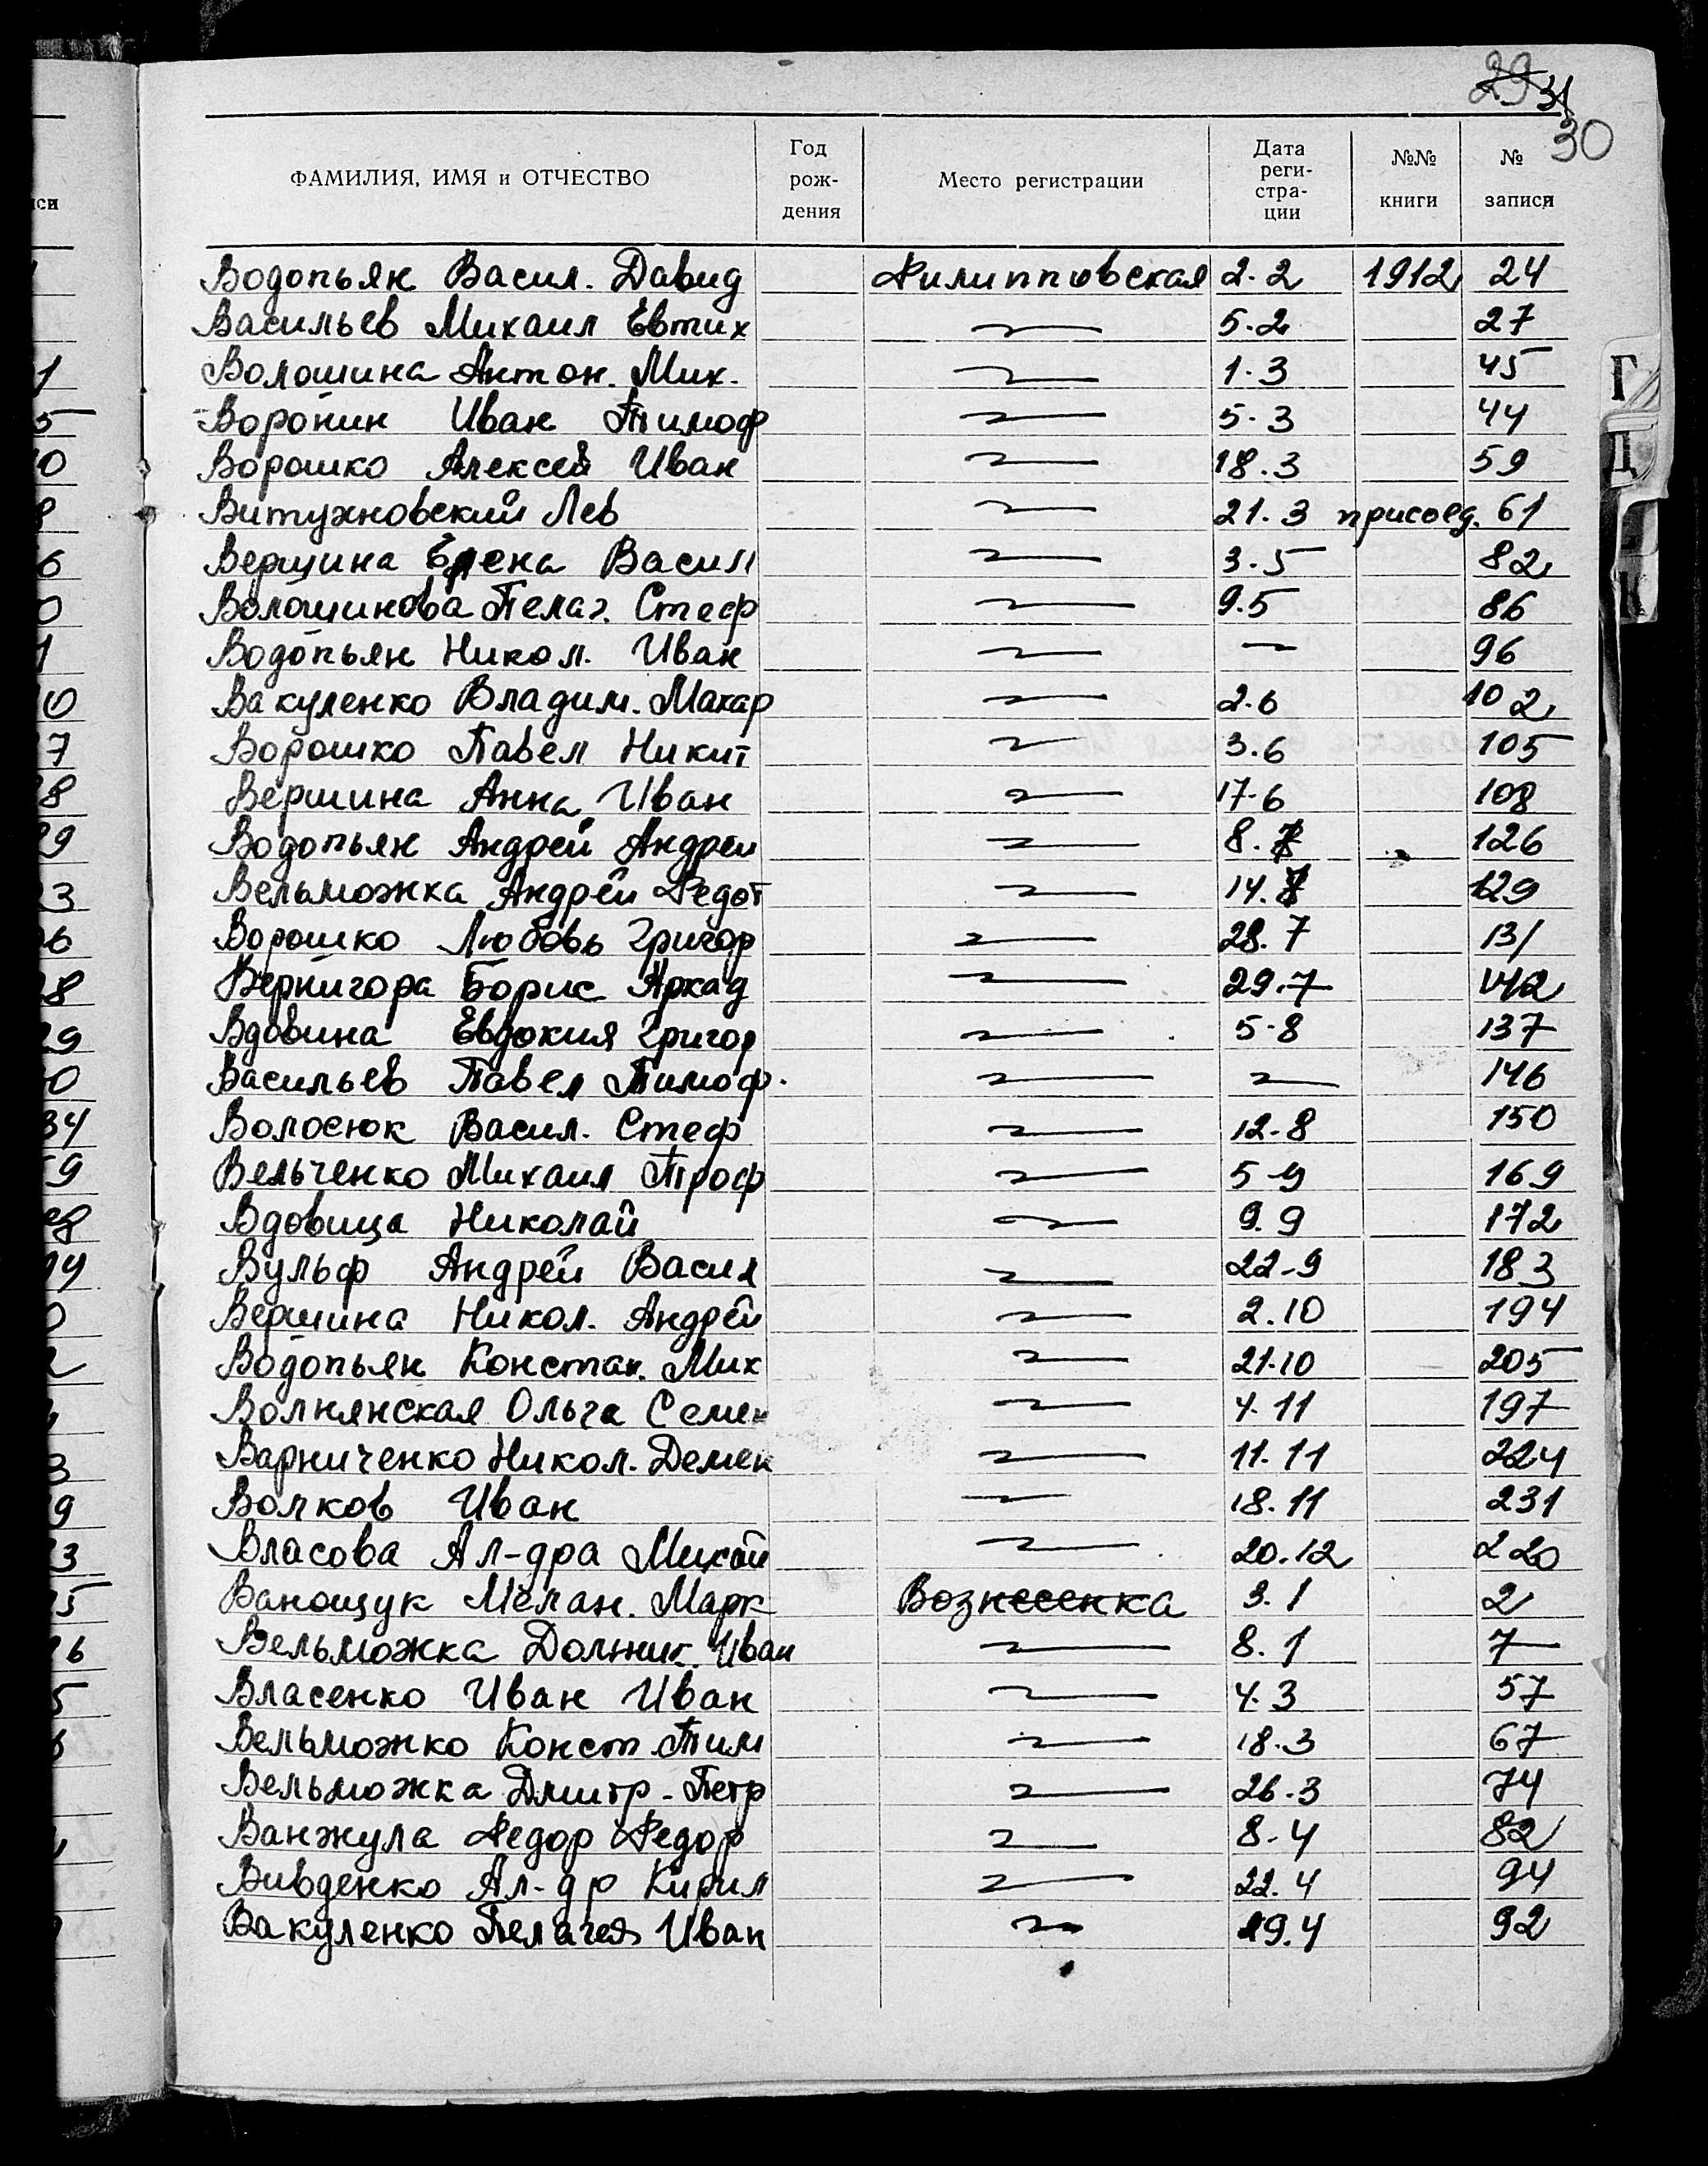 29 31
30
ФАМИЛИЯ, ИМЯ и ОТЧЕСТВО Год рож- дения Место регистрации Дата реги- стра- ции №№ книги № записи
Водопьян Васил. Давид Филипповская 2.2 1912 24
Васильев Михаил Евтих 5.2 27
Волошина Антон. Мих. 1.3 45
Воронин Иван Тимоф 5.3 44
Ворошко Алексей Иван 18.3 59
Витухновский Лев 21.3 присоед. 61
Вершина Елена Васил 3.5 82
Волошинова Пелаг. Стеф 9.5 86
Водопьян Никол. Иван — 96
Вакуленко Владим. Макар 2.6 102
Ворошко Павел Никит 3.6 105
Вершина Анна Иван 17.6 108
Водопьян Андрей Андрей 8.7 126
Вельможка Андрей Федот 14.7 129
Ворошко Любовь Григор 28.7 131
Вернигора Борис Аркад 29.7 142
Вдовина Евдокия Григор 5-8 137
Васильев Павел Тимоф. — 146
Волосюк Васил. Стеф 12-8 150
Вельченко Михаил Троф 5-9 169
Вдовица Николай 9.9 172
Вульф Андрей Васил 22-9 183
Вершина Никол. Андрей 2.10 194
Водопьян Констан. Мих 21.10 205
Волнянская Ольга Семен 4.11 197
Варниченко Никол. Демен 11.11 224
Волков Иван 18.11 231
Власова Ал-дра Михай 20.12 220
Ванощук Мелан. Марк Вознесенка 3.1 2
Вельможка Долник. Иван 8.1 7
Власенко Иван Иван 4.3 57
Вельможко Конст. Тим 18.3 67
Вельможка Дмитр-Петр 26.3 74
Ванжула Федор Федор 8.4 82
Вивденко Ал-др Кирил 22.4 94
Вакуленко Пелагея Иван 29.4 92
Г
Д
К